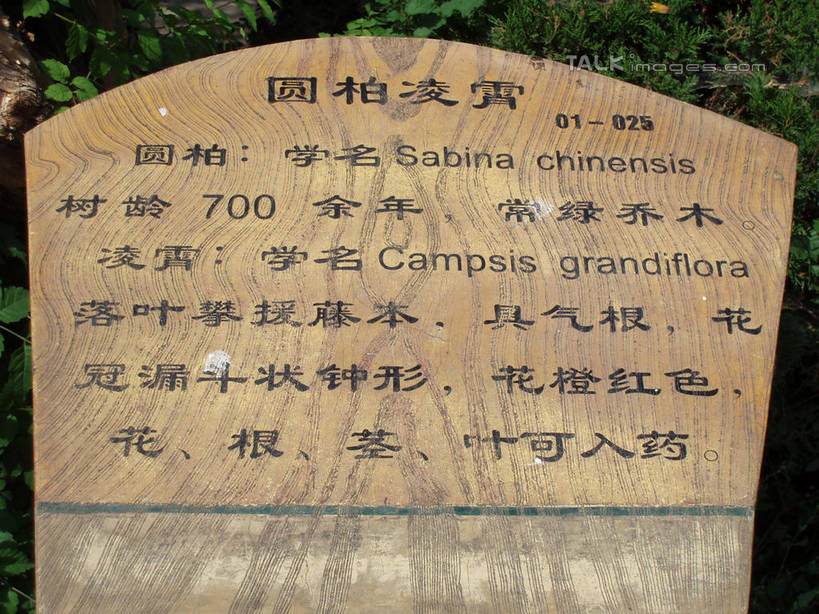 TALK images.com
圆柏凌霄
01-025
圆柏：学名 Sabina chinensis
树龄 700 余年，常绿乔木。
凌霄：学名 Campsis grandiflora
落叶攀援藤本，具气根，花
冠漏斗状钟形，花橙红色，
花、根、茎、叶可入药。